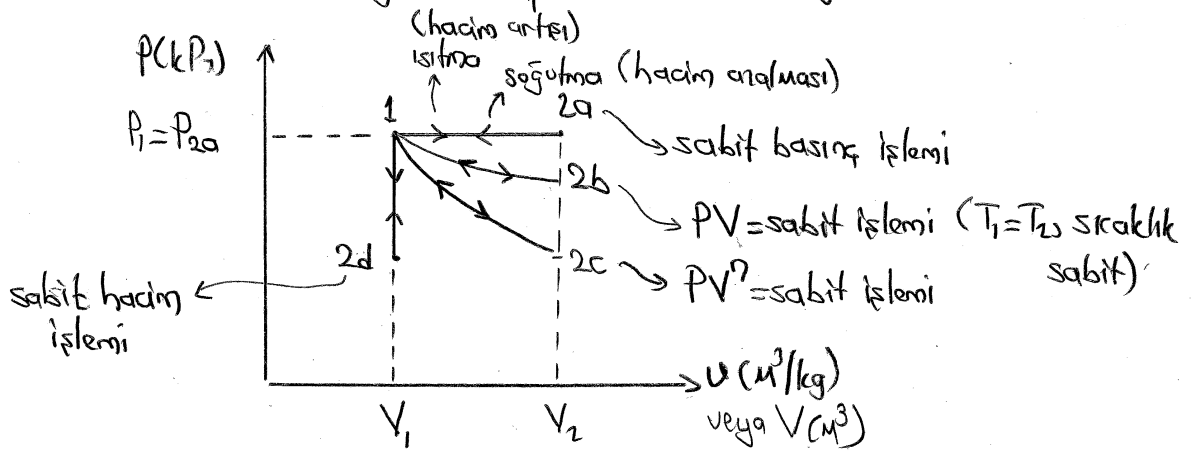 (hacim artışı)
ısıtma
soğutma (hacim azalması)
P(kPa)
1
2a
P₁=P₂ₐ
sabit basınç işlemi
2b
PV=sabit işlemi (T₁=T₂, sıcaklık
sabit)
2c
PVⁿ=sabit işlemi
2d
sabit hacim
işlemi
V₁
V₂
υ (m³/kg)
veya V(m³)